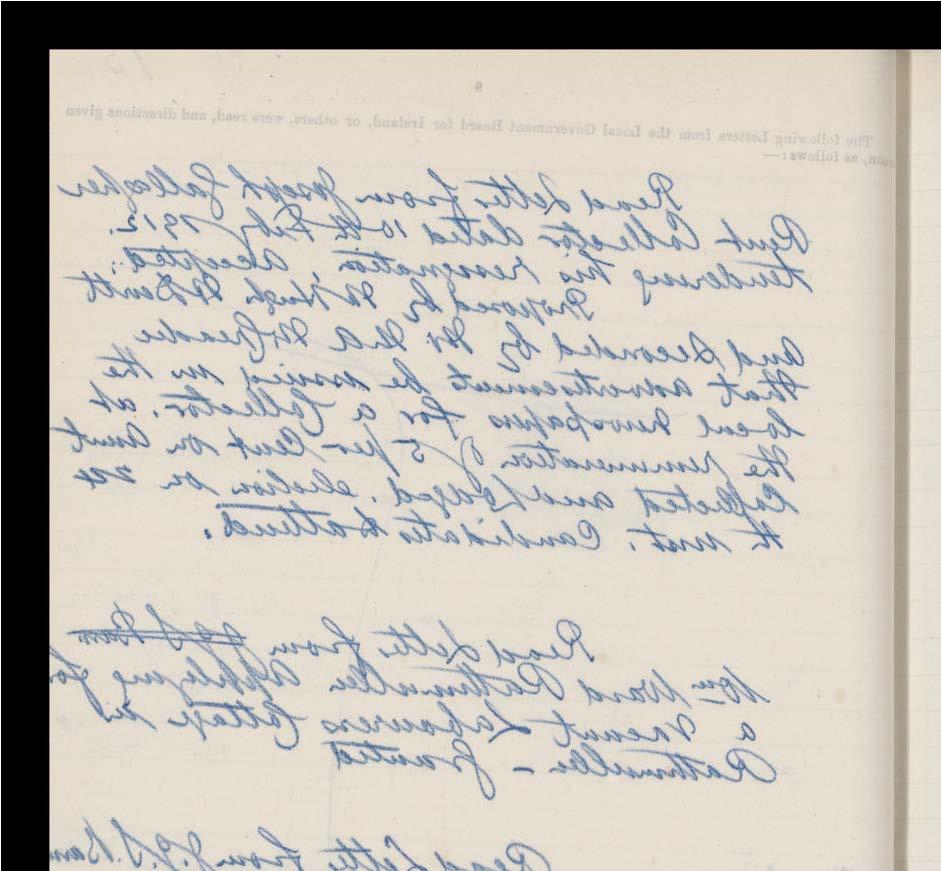 9
The following Letters from the Local Government Board for Ireland, or others, were read, and directions given
as follows:—
Read Letter from Joseph Gallagher
Rent Collector dated 10th Feby 1912.
tendering his resignation, accepted.
Proposed by Mr Hugh
and seconded by Mr
that advertisement be issued in the
local newspapers for a Collector, at
the remuneration of 5 per Cent on Amt
Collected and Lodged. election on 24
th inst. Candidates to attend.
Read Letter from
Wm Ward Rathmullen applying for
a vacant Labourers Cottage
Rathmullen – Granted
Read Letter from